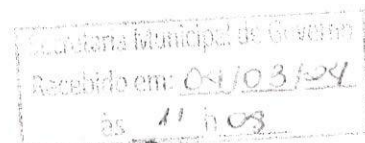 Secretaria Municipal de Governo
Recebido em: 04/03/24
às 11 h 08